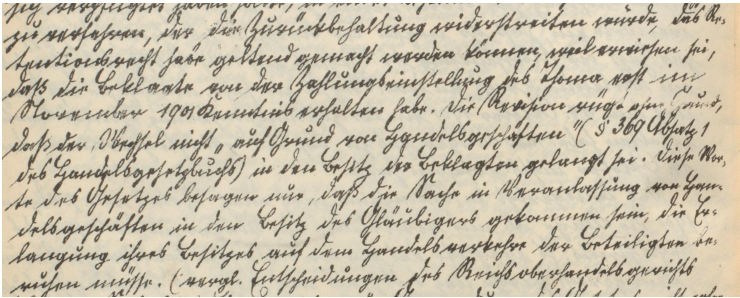 zu verfahren, der die Zurückbehaltung widerstreiten würde, das Re-
tentionsrecht habe geltend gemacht werden können, weil erwiesen sei,
daß die Beklagte von der Zahlungseinstellung des Thoma erst im
November 1901 Kenntnis erhalten habe. Die Revision rügt ohne Grund,
daß der Wechsel nicht „auf Grund von Handelsgeschäften" (§ 369 Absatz 1
des Handelsgesetzbuchs) in den Besitz der Beklagten gelangt sei. Diese Wor-
te des Gesetzes besagen nur, daß die Sache in Veranlassung von Han-
delsgeschäften in den Besitz des Gläubigers gekommen sein, die Er-
langung ihres Besitzes auf dem Handelsverkehre der Beteiligten be-
ruhen müsse. (vergl. Entscheidungen des Reichsoberhandelsgerichts